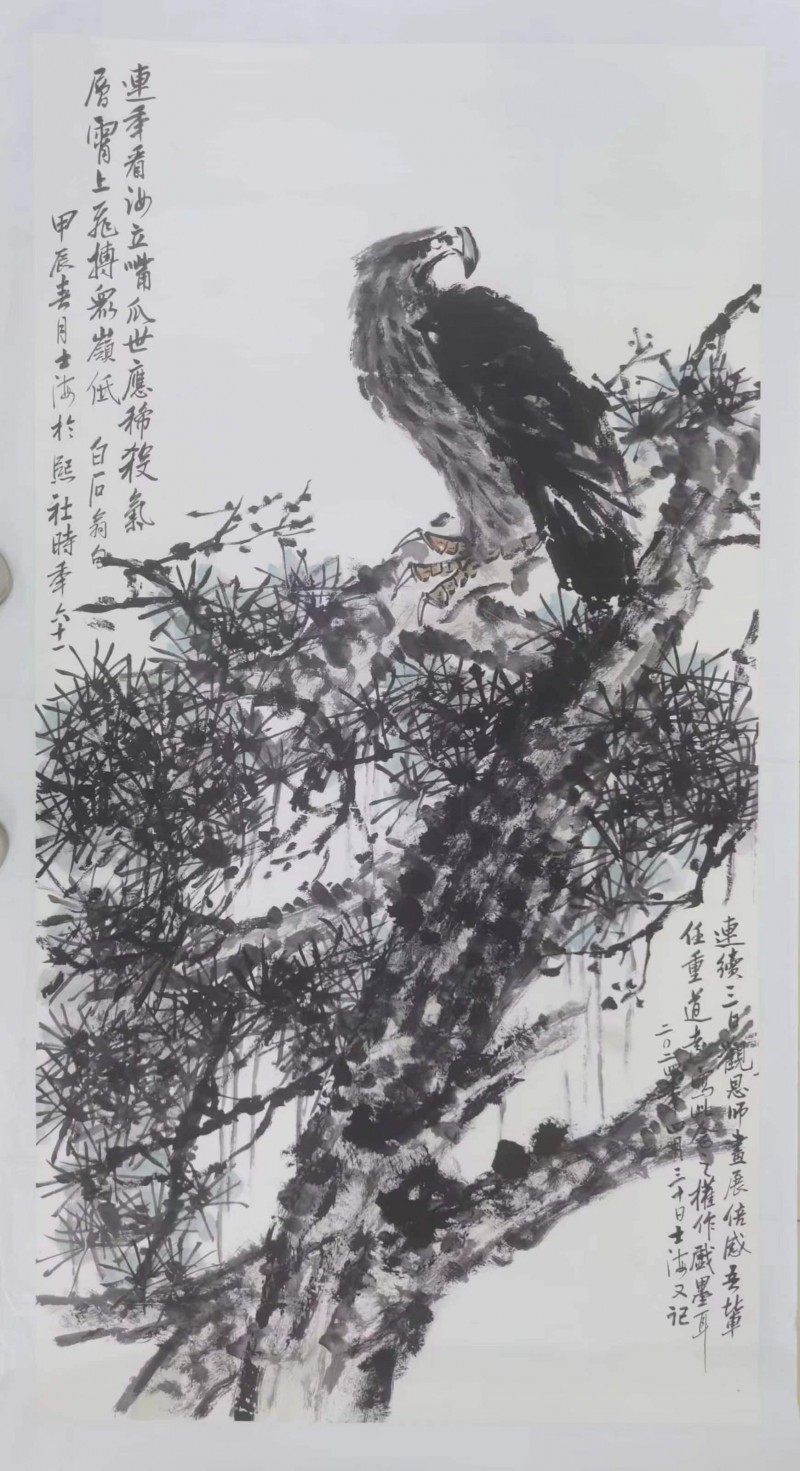 連年看汝立嘴爪世應稀殺氣
層霄上飛搏眾嶺低 白石翁句
甲辰春月士海於熙社時年六十一
連續三日觀恩師畫展倍感吾輩
任重道遠寫此之權作戲墨耳
二〇二四年四月三十日士海又记